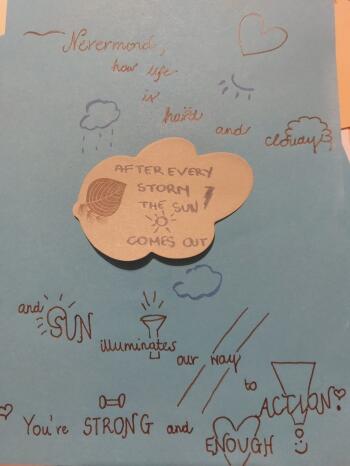 Nevermond,
how life
is
hard
and
cloudy
AFTER EVERY
STORM
THE SUN
COMES OUT
and
SUN
illuminates
our way
to
ACTION!
You're STRONG and
ENOUGH